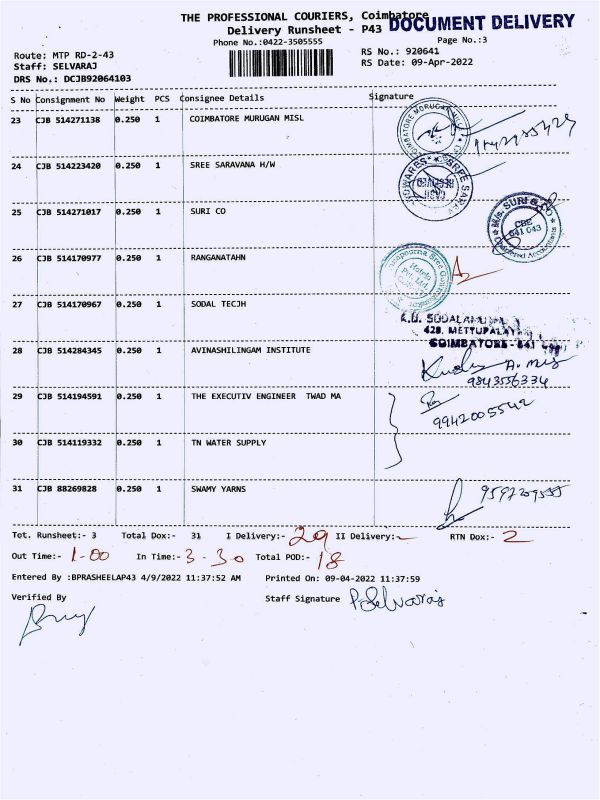 THE PROFESSIONAL COURIERS, Coimbatore
DOCUMENT DELIVERY
Delivery Runsheet - P43
Phone No.:0422-3505555
Page No.:3
Route: MTP RD-2-43
RS No.: 920641
Staff: SELVARAJ
RS Date: 09-Apr-2022
DRS No.: DCJB92064103
S No Consignment No Weight PCS Consignee Details Signature
23 CJB 514271138 0.250 1 COIMBATORE MURUGAN MISL
24 CJB 514223420 0.250 1 SREE SARAVANA H/W
25 CJB 514271017 0.250 1 SURI CO
M/s. SURI & CO
CBE
641 043
Chartered Accountants
26 CJB 514170977 0.250 1 RANGANATAHN
Hotels
Pvt. Ltd.
27 CJB 514170967 0.250 1 SODAL TECJH
428, METTUPALAY
COIMBATORE - 641
28 CJB 514284345 0.250 1 AVINASHILINGAM INSTITUTE
9843556334
29 CJB 514194591 0.250 1 THE EXECUTIV ENGINEER TWAD MA
9942005542
30 CJB 514119332 0.250 1 TN WATER SUPPLY
31 CJB 88269828 0.250 1 SWAMY YARNS
Tot. Runsheet:- 3 Total Dox:- 31 I Delivery:- 29 II Delivery:- RTN Dox:- 2
Out Time:- 1-00 In Time:- 3-30 Total POD:- 18
Entered By :BPRASHEELAP43 4/9/2022 11:37:52 AM Printed On: 09-04-2022 11:37:59
Verified By Staff Signature P.Selvaraj